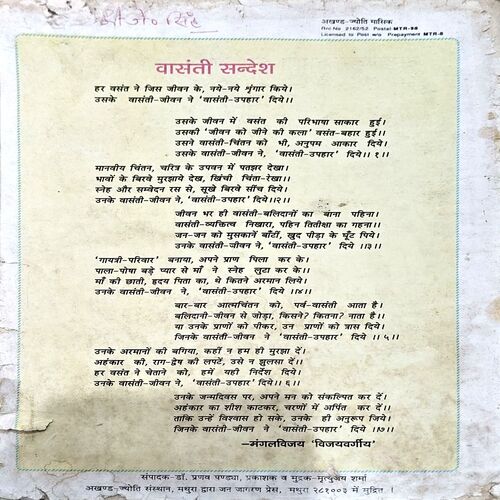 अखण्ड-ज्योति मासिक
Rni.No 2162/52 Postal-MTR-98
Licensed to Post w/o Prepayment MTR-8
वासंती सन्देश
हर वसंत ने जिस जीवन के, नये-नये शृंगार किये।
उसके वासंती-जीवन ने 'वासंती-उपहार' दिये।।
उसके जीवन में वसंत की परिभाषा साकार हुई।
उसकी 'जीवन को जीने की कला' वसंत-बहार हुई।।
उसने वासंती-चिंतन को भी, अनुपम आकार दिये।
उसके वासंती-जीवन ने, 'वासंती-उपहार' दिये।। १।।
मानवीय चिंतन, चरित्र के उपवन में पतझर देखा।
भावों के बिरवे मुरझाये देख, खिंची चिंता-रेखा।।
स्नेह और सम्वेदन रस से, सूखे बिरवे सींच दिये।
उनके वासंती-जीवन ने, 'वासंती-उपहार' दिये।।२।।
जीवन भर ही वासंती-बलिदानों का बाना पहिना।
वासंती-व्यक्तित्व निखारा, पहिन तितीक्षा का गहना।।
जन-जन को मुसकानें बाँटीं, खुद पीड़ा के घूँट पिये।
उनके वासंती-जीवन ने, 'वासंती-उपहार' दिये ।।३।।
'गायत्री-परिवार' बनाया, अपने प्राण पिला कर के।
पाला-पोषा बड़े प्यार से माँ ने स्नेह लुटा कर के।।
माँ की छाती, हृदय पिता का, थे कितने अरमान लिये।
उनके वासंती-जीवन ने, 'वासंती-उपहार' दिये ।।४।।
बार-बार आत्मचिंतन को, पर्व-वासंती आता है।
बलिदानी-जीवन से जोड़ा, किसने? कितना? नाता है।।
या उनके प्राणों को पीकर, उन प्राणों को त्रास दिये।
जिनके वासंती-जीवन ने 'वासंती-उपहार' दिये ।।५।।
उनके अरमानों की बगिया, कहीं न हम ही मुरझा दें।
अहंकार की, राग-द्वेष की लपटें, उसे न झुलसा दें।।
हर वसंत ने चेताने को, हमें यही निर्देश दिये।
उनके वासंती-जीवन ने, 'वासंती-उपहार' दिये।। ६।।
उनके जन्मदिवस पर, अपने मन को संकल्पित कर दें।
अहंकार का शीश काटकर, चरणों में अर्पित कर दें।।
ताकि उन्हें विश्वास हो सके, उनके ही अनुरूप जिये।
जिनके वासंती-जीवन ने 'वासंती-उपहार' दिये ।।७।।
—मंगलविजय 'विजयवर्गीय'
संपादक-डॉ. प्रणव पण्ड्या, प्रकाशक व मुद्रक-मृत्युंजय शर्मा
अखण्ड-ज्योति संस्थान, मथुरा द्वारा जन जागरण प्रेस, मथुरा २८१००३ में मुद्रित ।